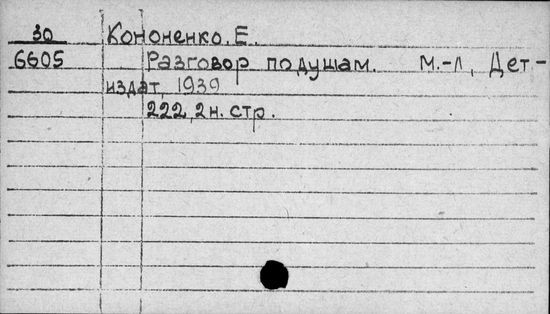 30 Кононенко. Е.
6605 Разговор по душам. М.-Л, Дет-
издат, 1939
222, 2 н. стр.